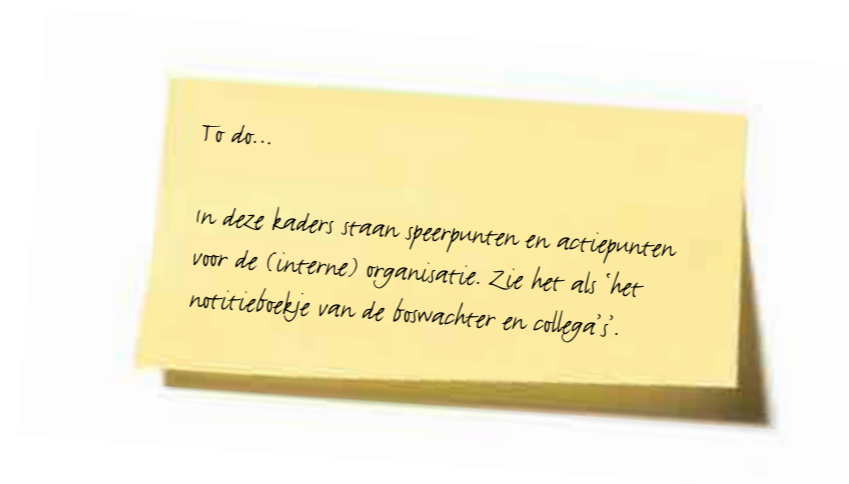 To do...
In deze kaders staan speerpunten en actiepunten
voor de (interne) organisatie. Zie het als ‘het
notitieboekje van de boswachter en collega’s’.